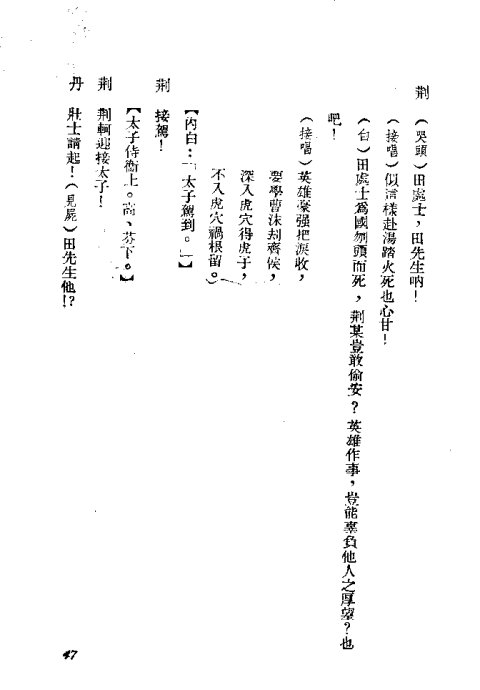 荆 （哭頭）田處士，田先生吶！
（接唱）似這樣赴湯踏火死也心甘！
（白）田處士爲國刎頭而死，荆某豈敢偷安？英雄作事，豈能辜負他人之厚望？也
吧！
（接唱）英雄豪强把淚收，
要學曹沫刦齊侯，
深入虎穴得虎子，
不入虎穴禍根留。）
【內白：「太子駕到。」】
荆 接駕！
【太子侍衞上。高、芬下。】
荆 荆軻迎接太子！
丹 壯士請起！（見屍）田先生他！？
47